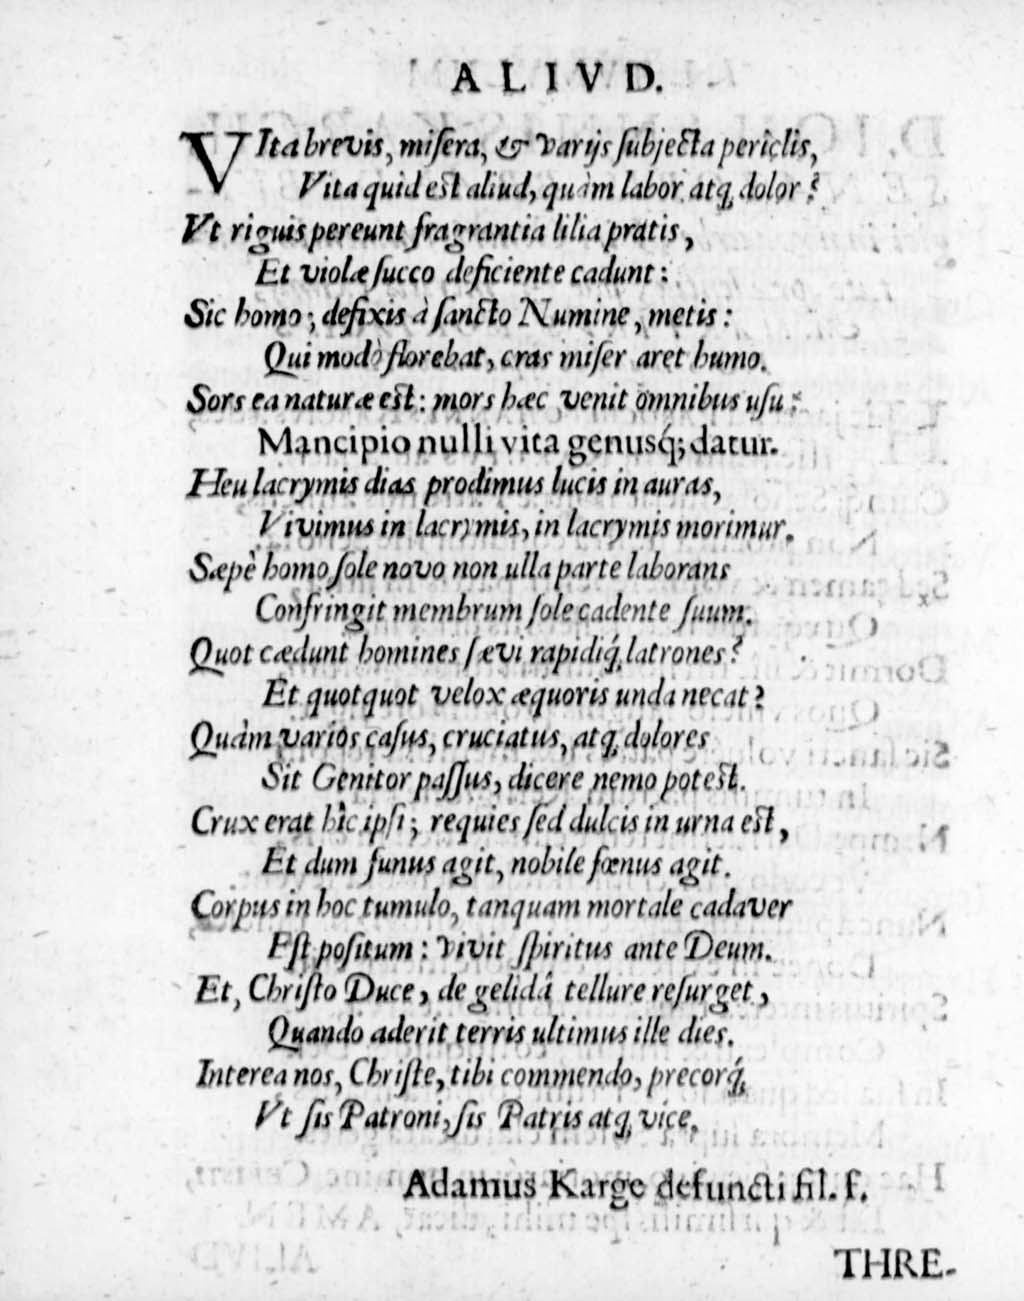 ALIVD.
VIta brevis, misera, & varijs subjecta periclis,
Vita quid est aliud, quàm labor atq́; dolor?
Vt riguis pereunt fragrantia lilia pratis,
Et violæ succo deficiente cadunt:
Sic homo; defixis à sancto Numine, metis:
Qui modò florebat, cras miser aret humo.
Sors ea naturæ est: mors hæc venit omnibus usu:
Mancipio nulli vita genusq́; datur.
Heu lacrymis dias prodimus lucis in auras,
Vivimus in lacrymis, in lacrymis morimur.
Sæpè homo sole novo non ulla parte laborans
Confringit membrum sole cadente suum.
Quot cædunt homines sævi rapidiq́; latrones?
Et quotquot velox æquoris unda necat?
Quàm varios casus, cruciatus, atq́; dolores
Sit Genitor passus, dicere nemo potest.
Crux erat hîc ipsi; requies sed dulcis in urna est,
Et dum funus agit, nobile fœnus agit.
Corpus in hoc tumulo, tanquam mortale cadaver
Est positum: vivit spiritus ante Deum.
Et, Christo Duce, de gelidâ tellure resurget,
Quando aderit terris ultimus ille dies.
Interea nos, Christe, tibi commendo, precorq́;
Vt sis Patroni, sis Patris atq́; vice.
Adamus Karge defuncti fil. f.
THRE-